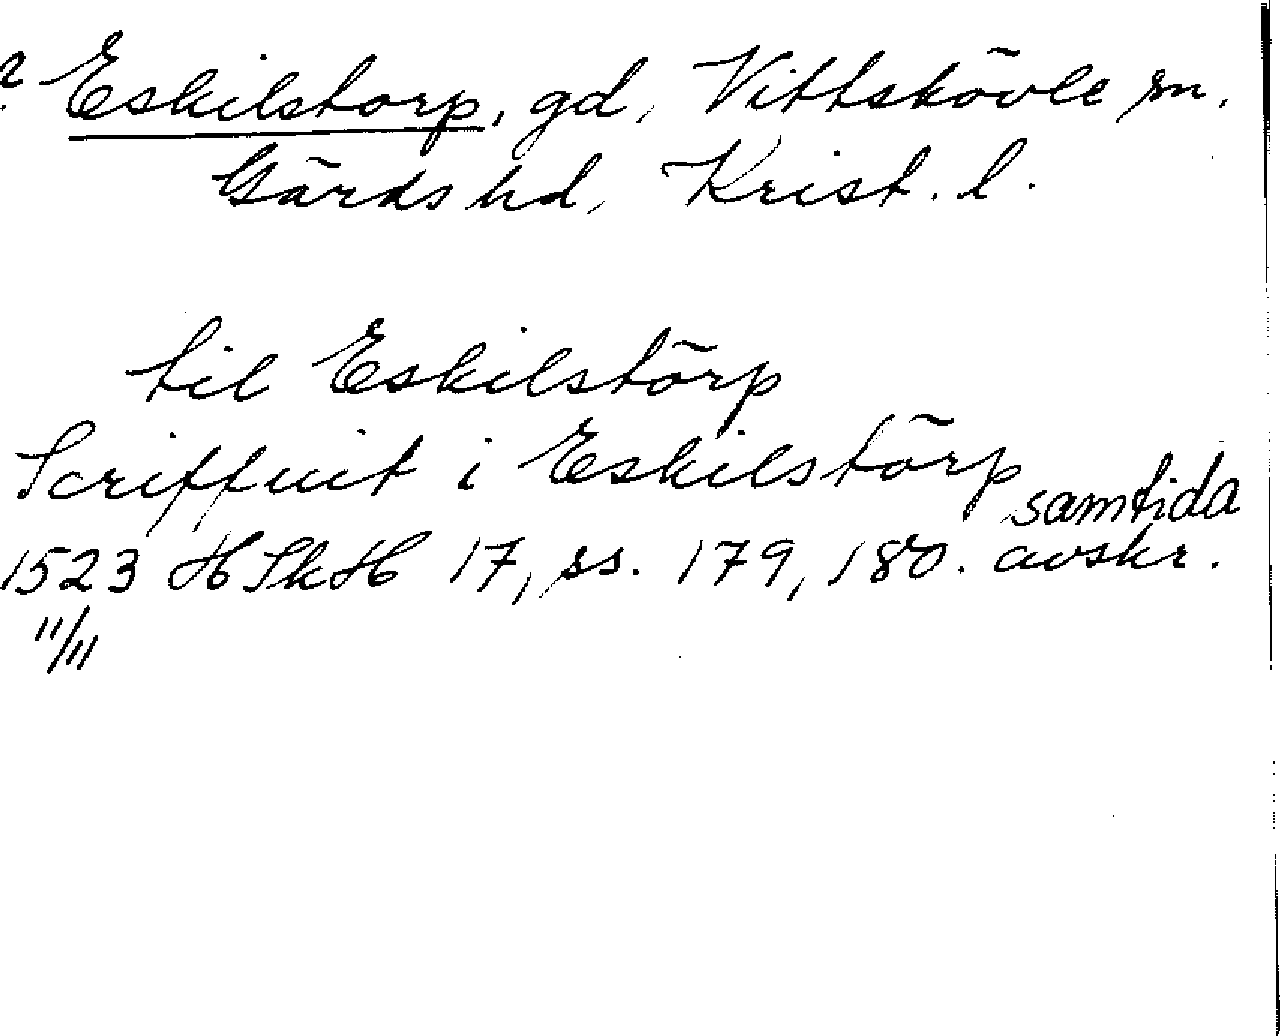 ? Eskilstorp, gd, Vittskövle sn.
Gärds hd, Krist. l.
til Eskilstörp
Scriffuit i Eskilstörp
samtida
1523 HSkH 17, ss. 179, 180. avskr.
11/11